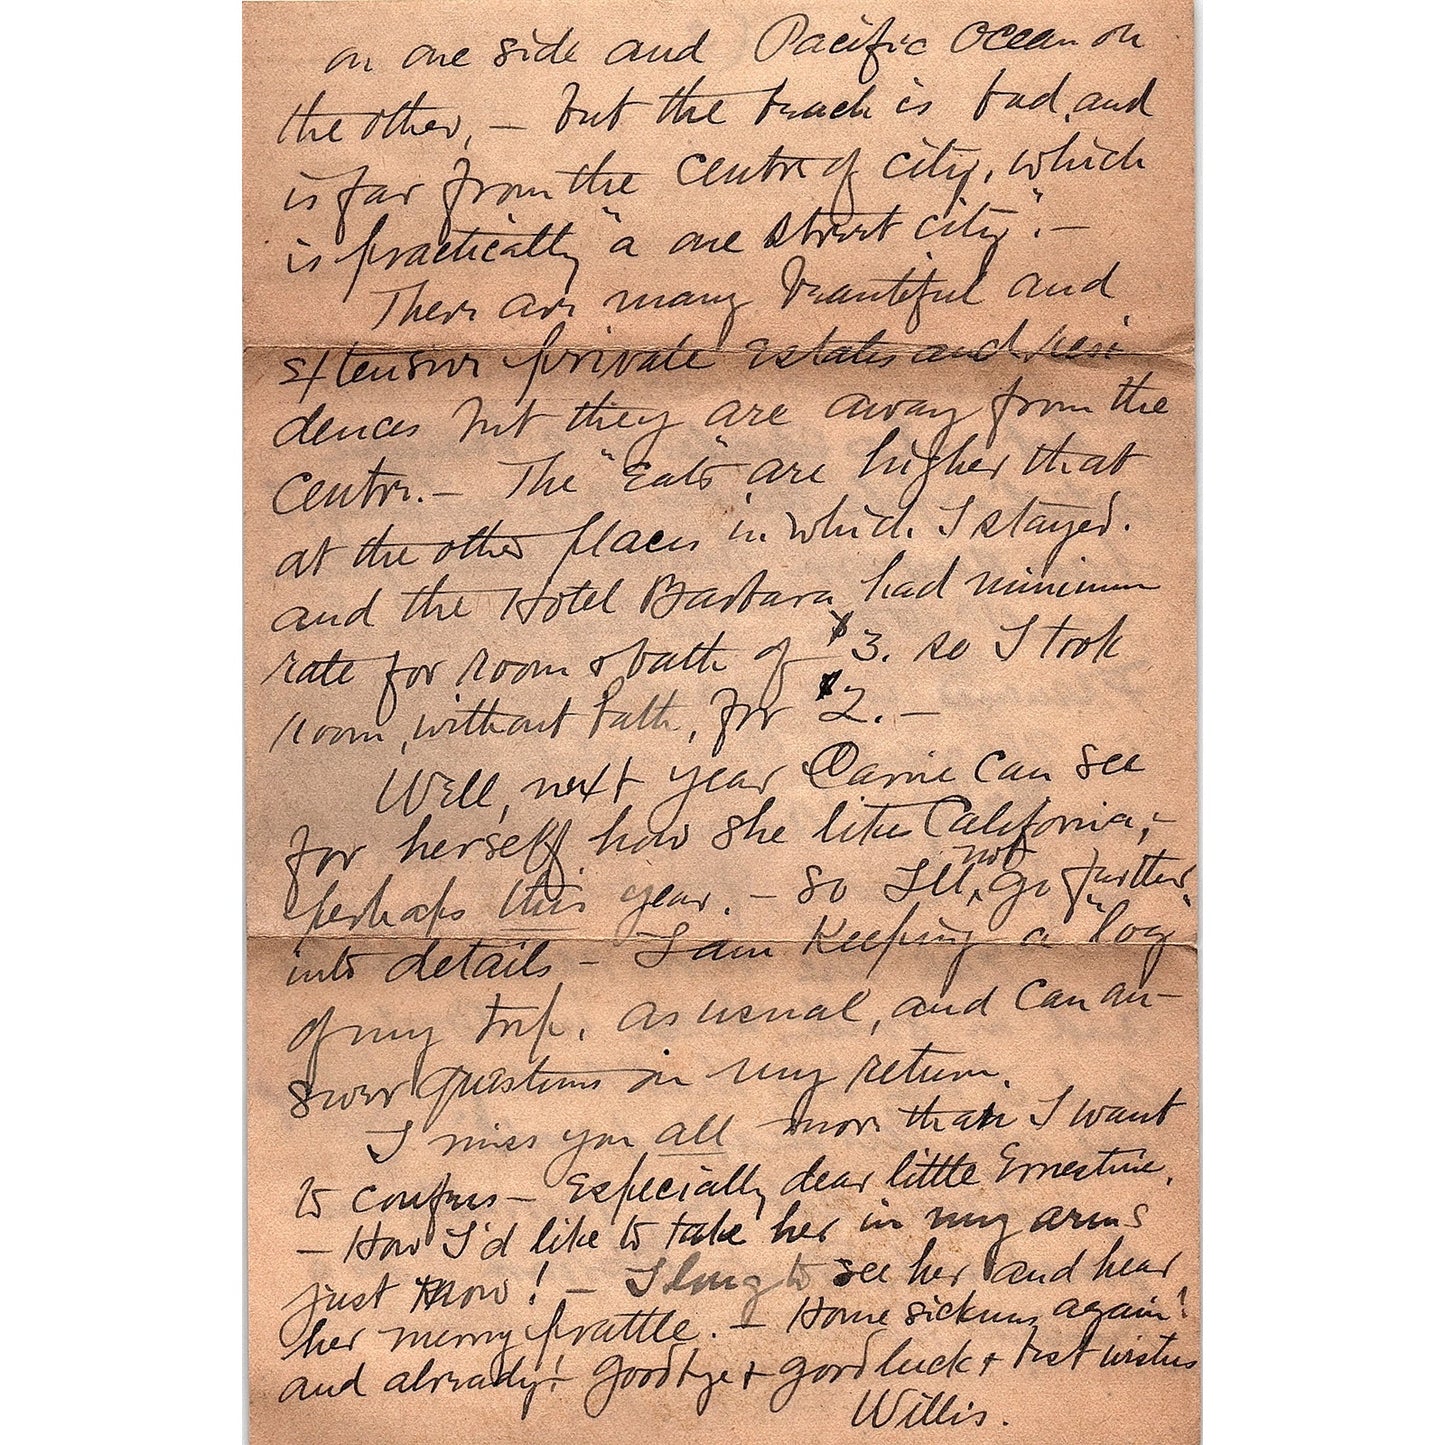 on one side and Pacific Ocean on
the other, – but the beach is bad, and
is far from the centre of city, which
is practically "a one street city". –
There are many beautiful and
extensive private estates and resi
dences but they are away from the
centre. – The "Eats" are higher that
at the other places in which I stayed.
and the Hotel Barbara had minimum
rate for room & bath of $3. so I took
room, without bath, for $2. –
Well, next year Carrie can see
for herself how she likes California, –
perhaps this year. – So I'll not go further
into details – I am keeping a "log"
of my trip, as usual, and can an–
swer questions on my return.
I miss you all more than I want
to confess – Especially dear little Ernestine.
– How I'd like to take her in my arms
just now! – I long to see her and hear
her merry prattle. – Home sickness again!
and already! Goodbye & good luck & best wishes
Willis.